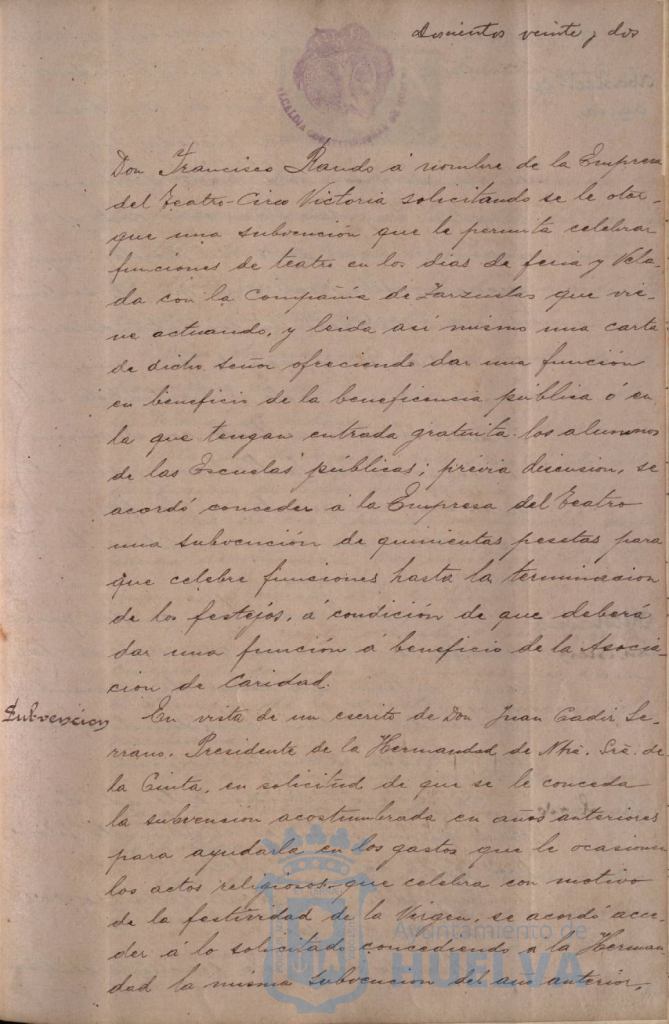 Doscientos veinte y dos
ALCALDIA
Don Francisco Rando á nombre de la Empresa
del Teatro-Circo Victoria solicitando se le otor-
gue una subvención que le permita celebrar
funciones de teatro en los dias de feria y Vela-
da con la Compañía de Zarzuelas que vie-
ne actuando, y leida asi mismo una carta
de dicho señor ofreciendo dar una función
en beneficio de la beneficencia pública ó en
la que tengan entrada gratuita los alumnos
de las Escuelas públicas; previa discusion, se
acordó conceder á la Empresa del Teatro
una subvención de quinientas pesetas para
que celebre funciones hasta la terminacion
de los festejos, á condición de que deberá
dar una función á beneficio de la Asocia-
cion de Caridad.
Subvencion
En vista de un escrito de Don Juan Cadiz Se-
rrano, Presidente de la Hermandad de Ntrа. Srа. de
la Cinta, en solicitud de que se le conceda
la subvencion acostumbrada en años anteriores
para ayudarla en los gastos que le ocasionen
los actos religiosos que celebra con motivo
de la festividad de la Virgen, se acordó acce-
der á lo solicitado concediendo a la Herman
dad la misma subvencion del año anterior,
Ayuntamiento de
HUELVA